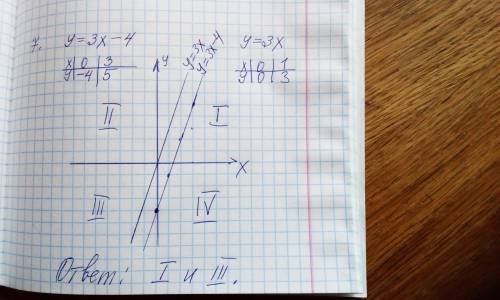 7. y=3x-4 y=3x
x | 0 | 3
y | -4 | 5
x | 0 | 1
y | 0 | 3
y
y=3x
y=3x-4
II I
x
III IV
Ответ: I и III.